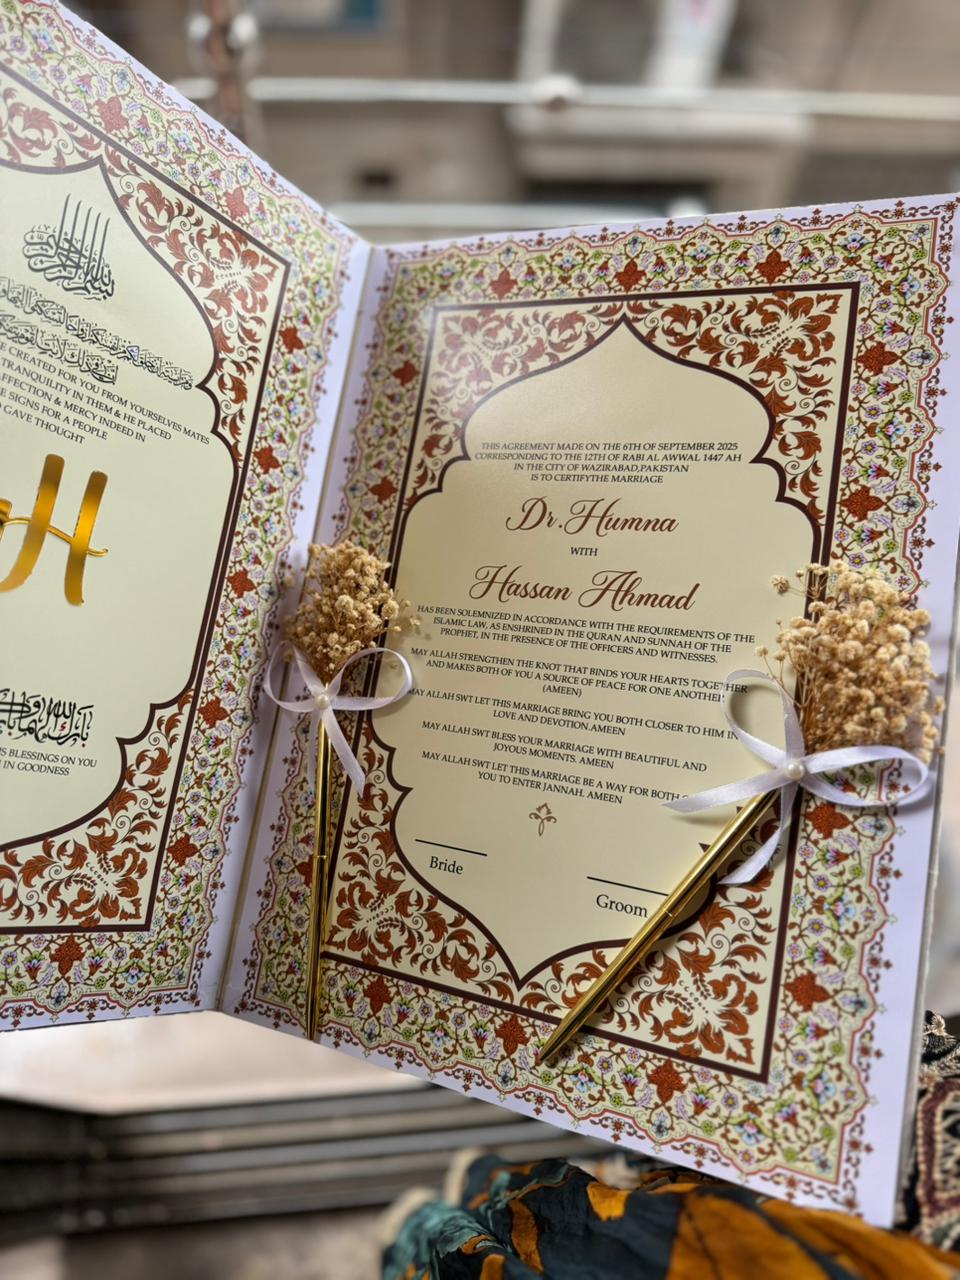 CREATED FOR YOU FROM YOURSELVES MATES
TRANQUILITY IN THEM & HE PLACED
AFFECTION & MERCY INDEED IN
SIGNS FOR A PEOPLE
GAVE THOUGHT
H
BLESSINGS ON YOU
IN GOODNESS
THIS AGREEMENT MADE ON THE 6TH OF SEPTEMBER 2025
CORRESPONDING TO THE 12TH OF RABI AL AWWAL 1447 AH
IN THE CITY OF WAZIRABAD,PAKISTAN
IS TO CERTIFYTHE MARRIAGE
Dr.Humna
WITH
Hassan Ahmad
HAS BEEN SOLEMNIZED IN ACCORDANCE WITH THE REQUIREMENTS OF THE
ISLAMIC LAW, AS ENSHRINED IN THE QURAN AND SUNNAH OF THE
PROPHET, IN THE PRESENCE OF THE OFFICERS AND WITNESSES.
MAY ALLAH STRENGTHEN THE KNOT THAT BINDS YOUR HEARTS TOGETHER
AND MAKES BOTH OF YOU A SOURCE OF PEACE FOR ONE ANOTHER
(AMEEN)
MAY ALLAH SWT LET THIS MARRIAGE BRING YOU BOTH CLOSER TO HIM IN
LOVE AND DEVOTION.AMEEN
MAY ALLAH SWT BLESS YOUR MARRIAGE WITH BEAUTIFUL AND
JOYOUS MOMENTS. AMEEN
MAY ALLAH SWT LET THIS MARRIAGE BE A WAY FOR BOTH
YOU TO ENTER JANNAH. AMEEN
Bride
Groom